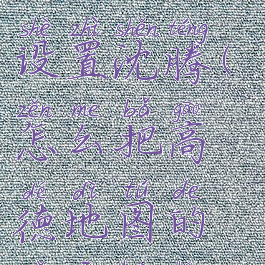 shè zhì shěn téng
设置沈腾(
zěn me bǎ gāo
怎么把高
dé dì tú de
德地图的